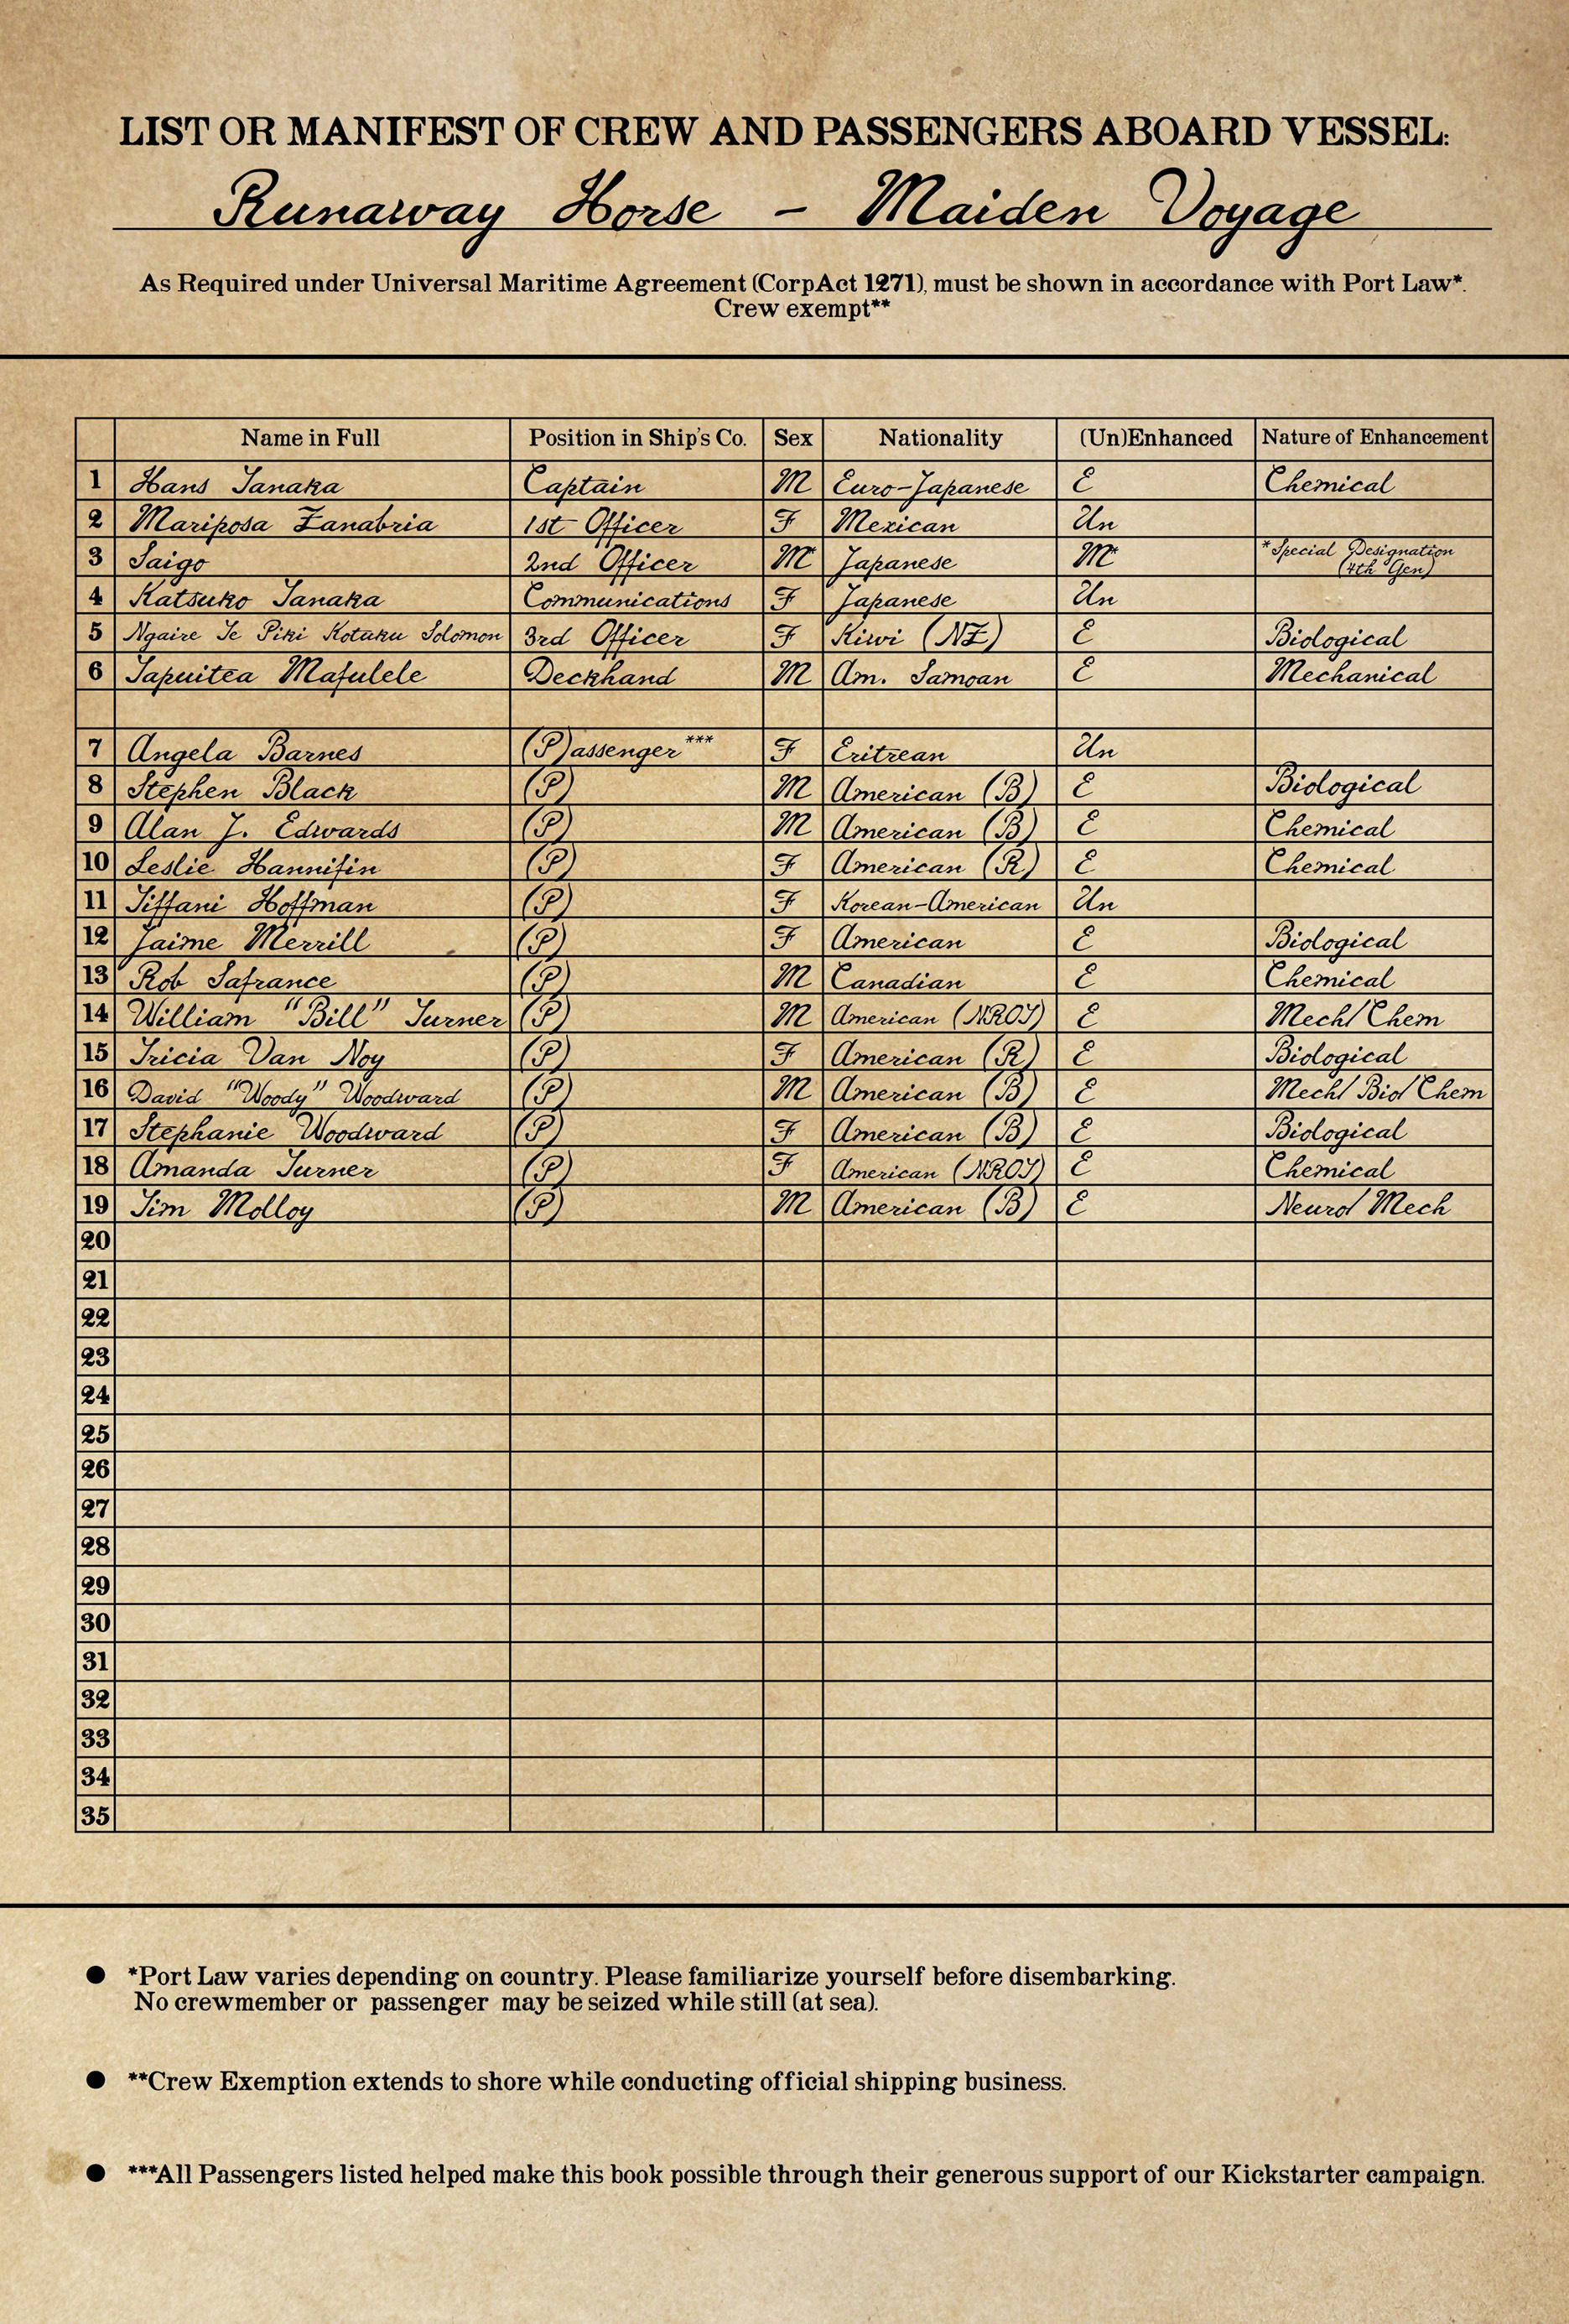 LIST OR MANIFEST OF CREW AND PASSENGERS ABOARD VESSEL:
Runaway Horse - Maiden Voyage
As Required under Universal Maritime Agreement (CorpAct 1271), must be shown in accordance with Port Law*.
Crew exempt**
Name in Full Position in Ship's Co. Sex Nationality (Un)Enhanced Nature of Enhancement
1 Hans Tanaka Captain M Euro-Japanese E Chemical
2 Mariposa Zanabria 1st Officer F Mexican Un
3 Saigo 2nd Officer M* Japanese M* *Special Designation (4th Gen)
4 Katsuko Tanaka Communications F Japanese Un
5 Ngaire Te Piki Kotuku Solomon 3rd Officer F Kiwi (NZ) E Biological
6 Tapuitea Mafulele Deckhand M Am. Samoan E Mechanical
7 Angela Barnes (P)assenger*** F Eritrean Un
8 Stephen Black (P) M American (B) E Biological
9 Alan J. Edwards (P) M American (B) E Chemical
10 Leslie Hannifin (P) F American (R) E Chemical
11 Tiffani Hoffman (P) F Korean-American Un
12 Jaime Merrill (P) F American E Biological
13 Rob Safrance (P) M Canadian E Chemical
14 William "Bill" Turner (P) M American (NROT) E Mech/Chem
15 Tricia Van Noy (P) F American (R) E Biological
16 David "Woody" Woodward (P) M American (B) E Mech/Bio/Chem
17 Stephanie Woodward (P) F American (B) E Biological
18 Amanda Turner (P) F American (NROT) E Chemical
19 Tim Molloy (P) M American (B) E Neuro/Mech
20
21
22
23
24
25
26
27
28
29
30
31
32
33
34
35
● *Port Law varies depending on country. Please familiarize yourself before disembarking.
No crewmember or passenger may be seized while still (at sea).
● **Crew Exemption extends to shore while conducting official shipping business.
● ***All Passengers listed helped make this book possible through their generous support of our Kickstarter campaign.